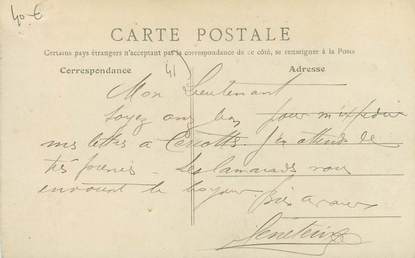 40 €
CARTE POSTALE
Certains pays étrangers n'acceptant pas la correspondance de ce côté, se renseigner à la Poste
Correspondance
41
Adresse
Mon Lieutenant
Soyez pour m'expédier
mes lettres à J'en attends de
très Les camarades vous
envoient le bonjour